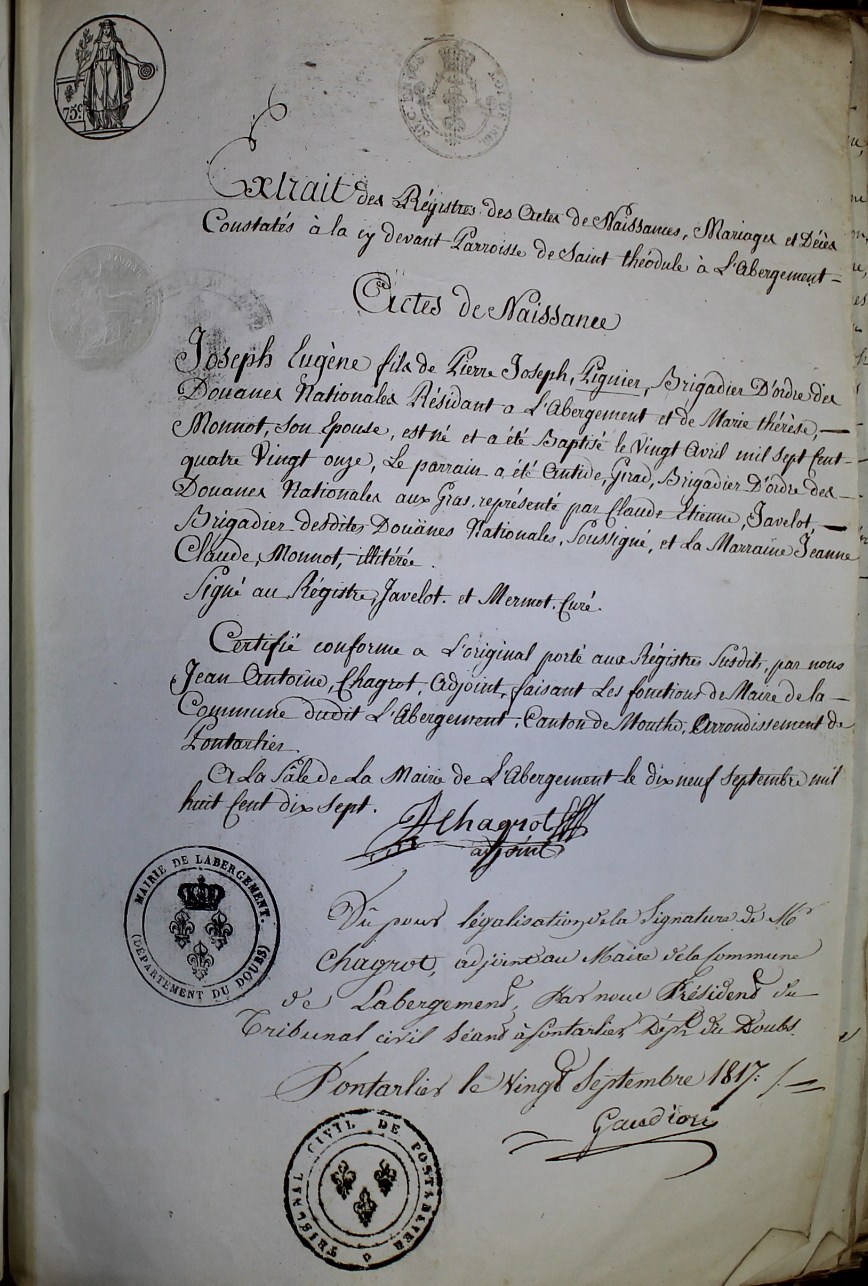 75c
Extrait des Régistres des Actes de Naissances, Mariages et Décès
Constatés à la cy devant Parroisse de Saint théodule à L'Abergement =
Actes de Naissance
Joseph Eugène fils de Pierre Joseph, Piguier, Brigadier D'ordre des
Douanes Nationales Résidant a L'Abergement et de Marie thérèse, —
Monnot, son Epouse, est né et a été Baptisé le Vingt Avril mil sept Cent
quatre Vingt onze, Le parrain a été Antide, Girad, Brigadier D'ordre des
Douanes Nationales aux Gras, représenté par Claude Etienne, Javelot —
Brigadier desdites Douänes Nationales, Soussigné, et La Marraine Jeanne
Claude, Monnot, illitérée.
Signé au Régistre, Javelot. et Mermot. Curé.
Certifié conforme a L'original porté aux Régistres Susdits, par nous
Jean Antoine, Chagrot, Adjoint, faisant Les fonctions de Maire de la —
Commune dudit L'Abergement, Canton de Mouthe, Arrondissement de
Pontarlier.
A La Sâle de La Mairie de L'Abergement le dix neuf Septembre mil
huit Cent dix Sept.
Chagrot
adjoint
MAIRIE DE LABERGEMENT.
(DÉPARTEMENT DU DOUBS)
Vû pour légalisation de la Signature de Mr
Chagrot, adjoint au Maire de la Commune
de Labergement, Par nous Président du
Tribunal civil Séant à Pontarlier Dépt. du Doubs.
Pontarlier le Vingt Septembre 1817. /. —
Gaudion
TRIBUNAL CIVIL DE PONTARLIER